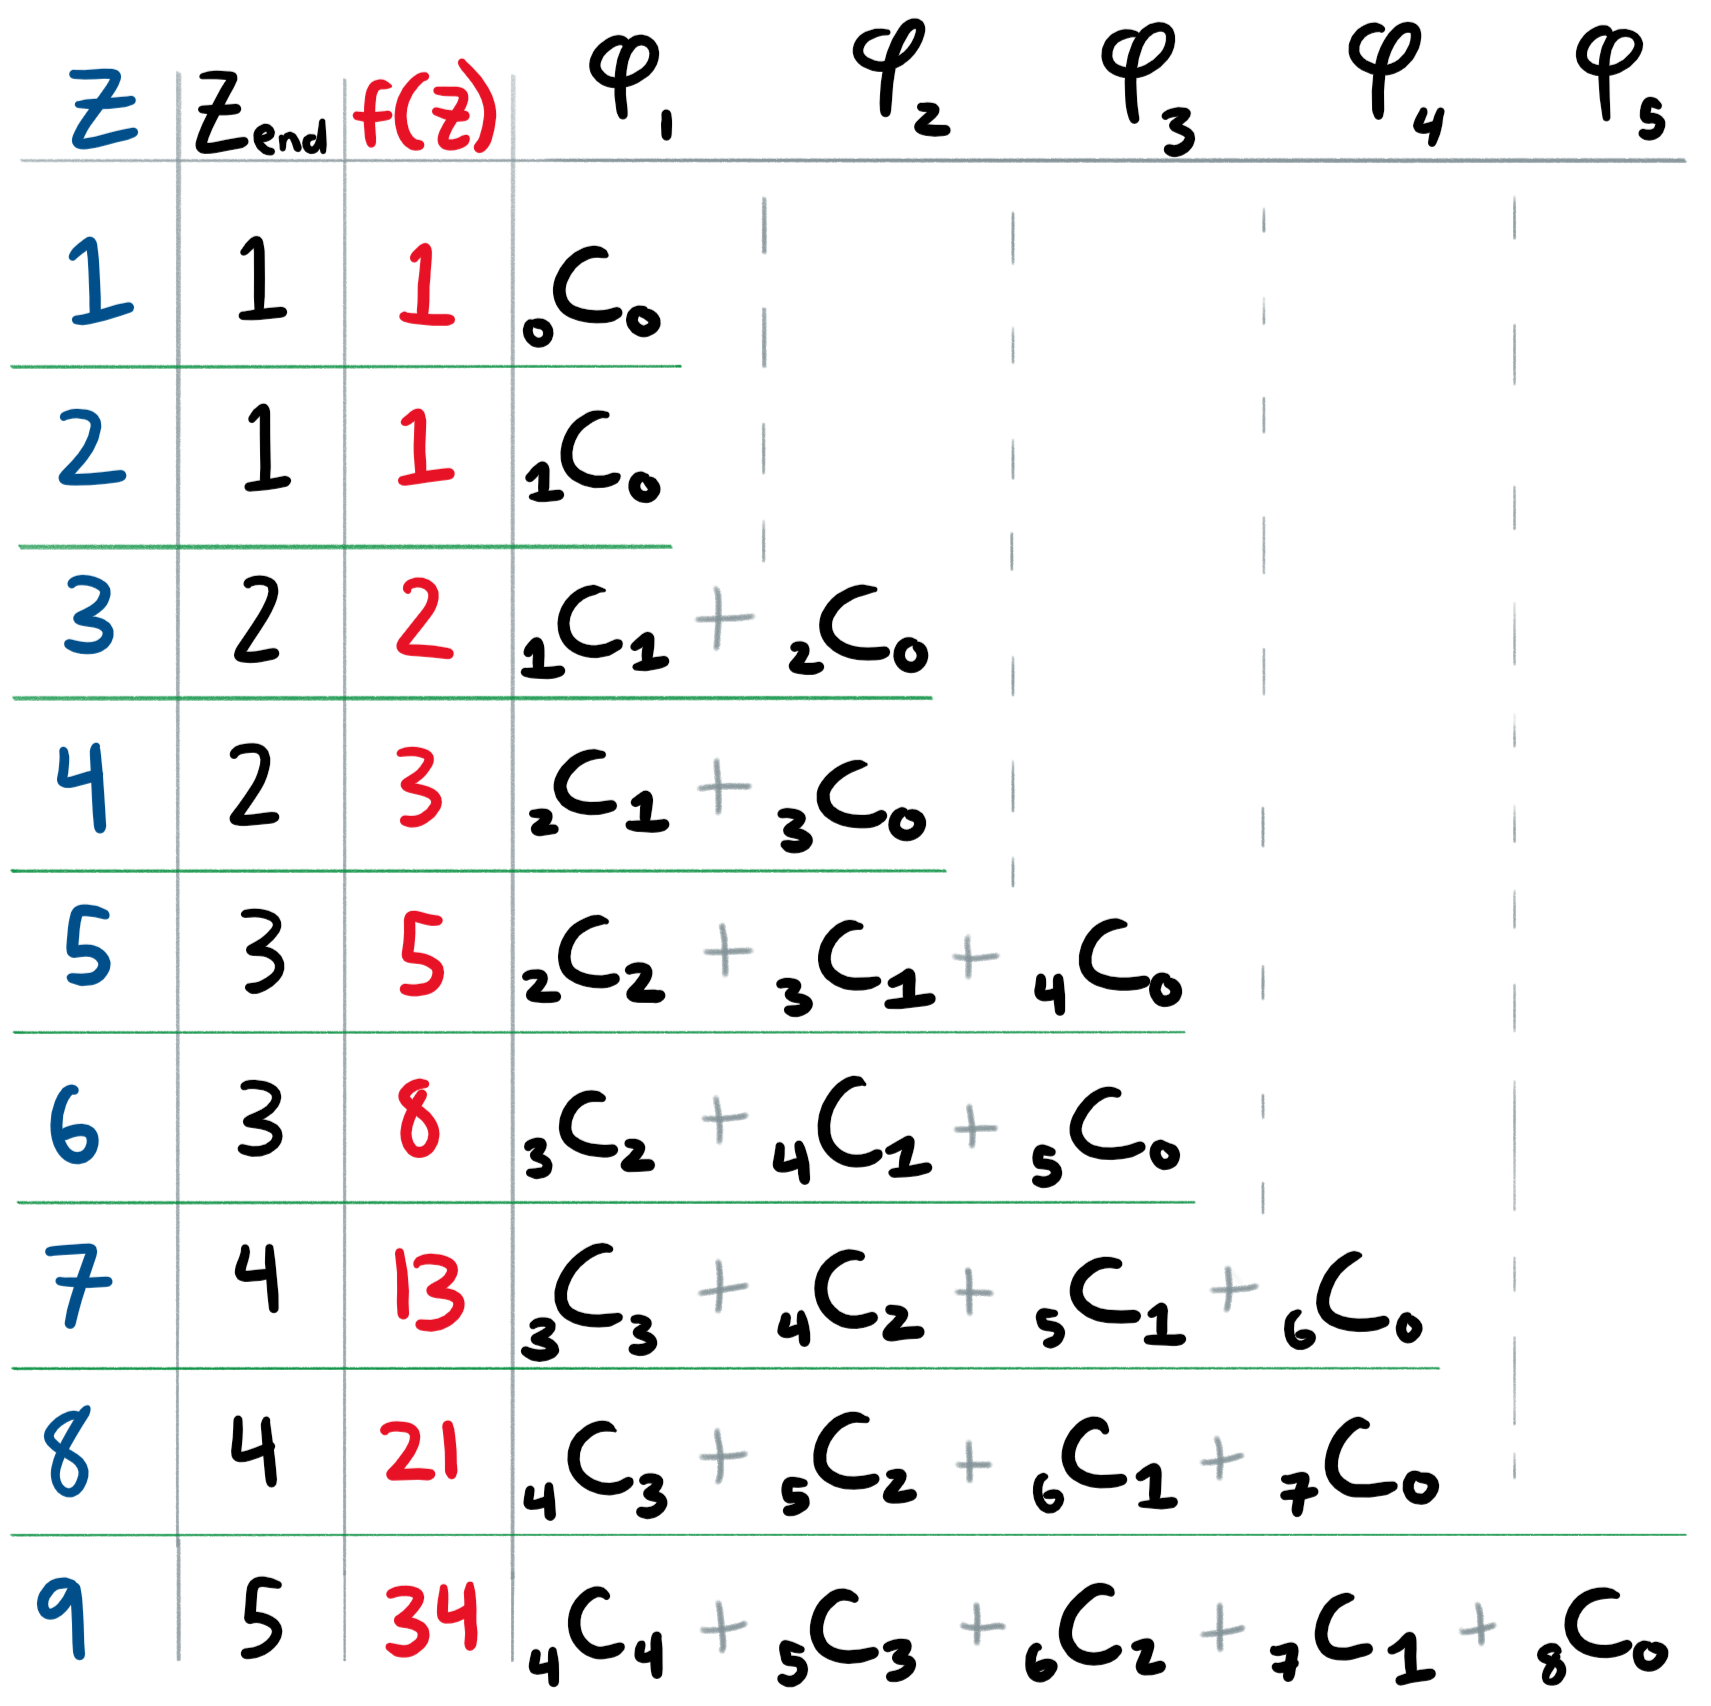 Z Zend f(z) φ₁ φ₂ φ₃ φ₄ φ₅
1 1 1 ₀C₀
2 1 1 ₁C₀
3 2 2 ₁C₁ + ₂C₀
4 2 3 ₂C₁ + ₃C₀
5 3 5 ₂C₂ + ₃C₁ + ₄C₀
6 3 8 ₃C₂ + ₄C₁ + ₅C₀
7 4 13 ₃C₃ + ₄C₂ + ₅C₁ + ₆C₀
8 4 21 ₄C₃ + ₅C₂ + ₆C₁ + ₇C₀
9 5 34 ₄C₄ + ₅C₃ + ₆C₂ + ₇C₁ + ₈C₀